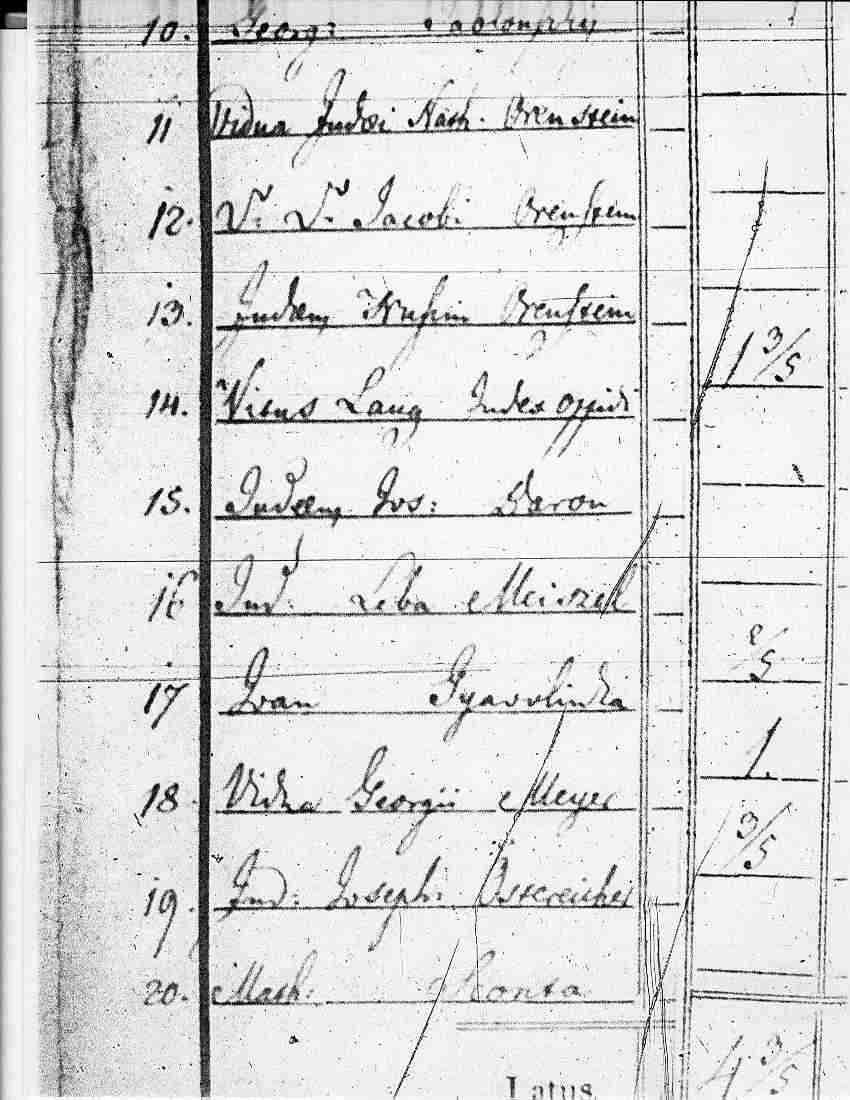 10. Georg:
11 Vidua Judæi Nath. Orenstein
12. V. V. Jacobi Orenstein
13. Judæus Orenstein
1 3/5
14. Vitus Lang Judex oppidi
15. Judæus Jos: Baron
16 Jud: Leba Meiszel
/5
17 Ivan
1.
18. Vidua Georgii Meyer
3/5
19. Jud: Joseph: Östereicher
20. Math:
Latus 4 3/5